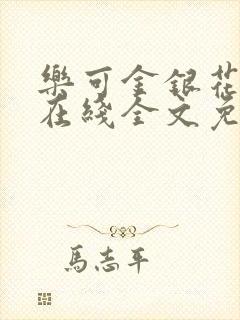 樂可金銀花
在綫全文免
馬志平